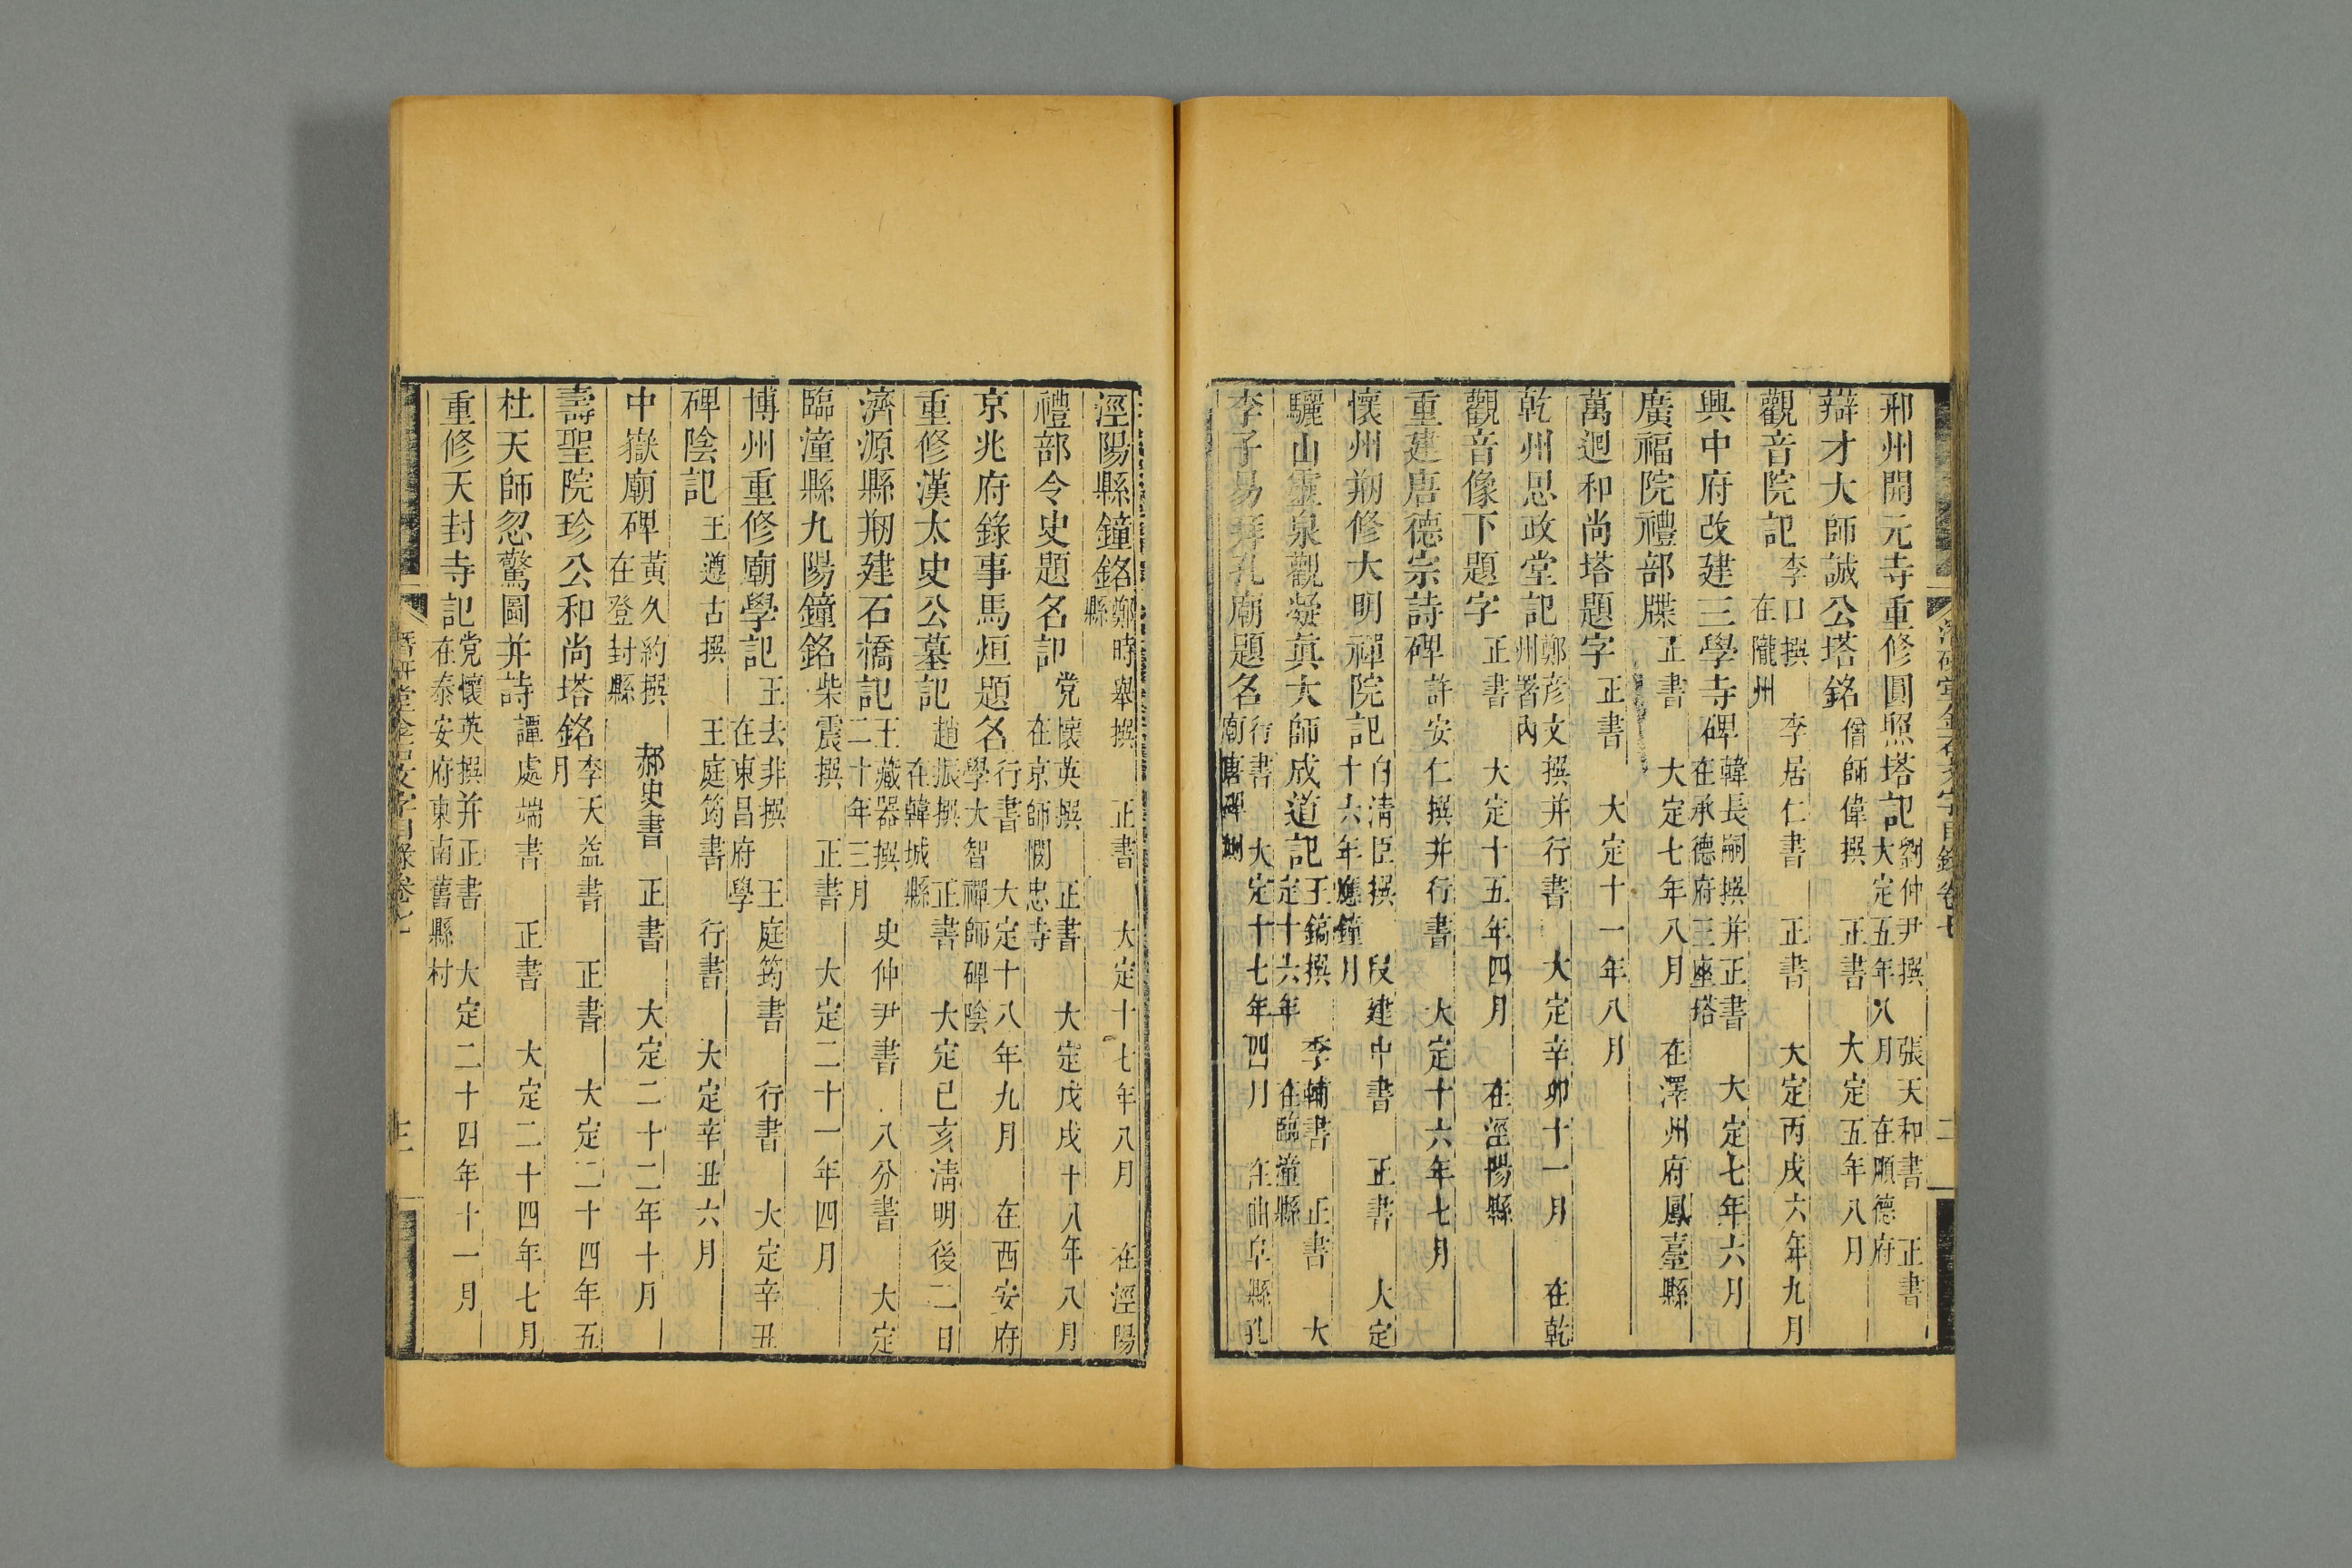 潛研堂金石文字目錄卷七 二
邢州開元寺重修圓照塔記 劉仲尹撰 張天和書 正書 大定五年八月 在順德府
辯才大師誠公塔銘 僧師偉撰 正書 大定五年八月
觀音院記 李口撰 李居仁書 正書 大定丙戌六年九月 在隴州
興中府改建三學寺碑 韓長嗣撰并正書 大定七年六月 在承德府三座塔
廣福院禮部牒 正書 大定七年八月 在澤州府鳳臺縣
萬迴和尚塔題字 正書 大定十一年八月
乾州思政堂記 鄭彥文撰并行書 大定辛卯十一月 在乾州署內
觀音像下題字 正書 大定十五年四月 在涇陽縣
重建唐德宗詩碑 許安仁撰并行書 大定十六年七月
懷州剏修大明禪院記 白清臣撰 段建中書 正書 大定十六年應鐘月
驪山靈泉觀凝真大師成道記 王鎬撰 李輔書 正書 大定十六年 在臨潼縣
李子易拜孔廟題名 行書 大定十七年四月 在曲阜縣孔廟唐碑側
涇陽縣鐘銘 鄭時舉撰 正書 大定十七年八月 在涇陽縣
禮部令史題名記 党懷英撰 正書 大定戊戌十八年八月 在京師憫忠寺
京兆府錄事馬烜題名 行書 大定十八年九月 在西安府學大智禪師碑陰
重修漢太史公墓記 趙振撰 正書 大定已亥清明後二日 在韓城縣
濟源縣剏建石橋記 王藏器撰 史仲尹書 八分書 大定二十年三月
臨潼縣九陽鐘銘 柴震撰 正書 大定二十一年四月
博州重修廟學記 王去非撰 王庭筠書 行書 大定辛丑 在東昌府學
碑陰記 王遵古撰 王庭筠書 行書 大定辛丑六月
中嶽廟碑 黃久約撰 郝史書 正書 大定二十二年十月 在登封縣
壽聖院珍公和尚塔銘 李天益書 正書 大定二十四年五月
杜天師忽驚圖并詩 譚處端書 正書 大定二十四年七月
重修天封寺記 党懷英撰并正書 大定二十四年十一月 在泰安府東南舊縣村
潛研堂金石文字目錄卷七 三